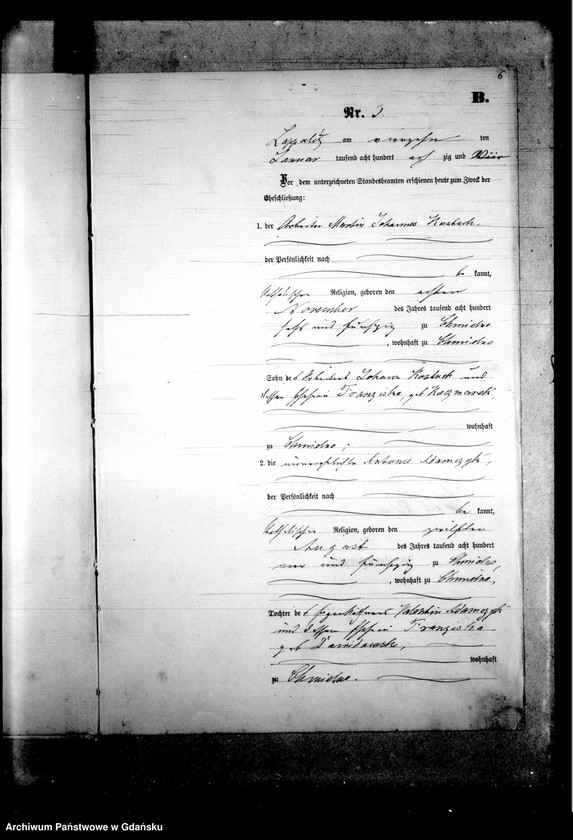 6
B.
Nr. 3
am vierzehn ten
Januar tausend acht hundert acht zig und
Vor dem unterzeichneten Standesbeamten erschienen heute zum Zweck der
Eheschließung:
1. der Arbeiter Martin Johannes
der Persönlichkeit nach
be kannt,
katholischer Religion, geboren den ersten
November des Jahres tausend acht hundert
sechs und fünfzig zu Chmielno
, wohnhaft zu Chmielno
Sohn des Arbeiters Johann und
dessen Ehefrau Franziska, geb
wohnhaft
zu Chmielno;
2. die unverehelichte Antonie Adamczyk,
der Persönlichkeit nach
be kannt,
katholischer Religion, geboren den zwölften
August des Jahres tausend acht hundert
vier und fünfzig zu Chmielno,
, wohnhaft zu Chmielno,
Tochter des Eigenthümers Valentin Adamczyk
und dessen Ehefrau Franziska
geb
wohnhaft
zu Chmielno.
Archiwum Państwowe w Gdańsku